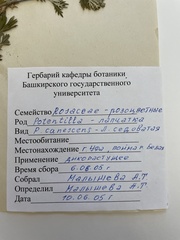 Гербарий кафедры ботаники
Башкирского государственного
университета
Семейство Rosaceae - розоцветные
Род Potentilla - лапчатка
Вид P. canescens - л. седоватая
Местообитание
Местонахождение г. Уфа,
Применение дикорастущее
Время сбора 6.06.05 г
Собрал Малышева А.Т
Определил Малышева А.Т
Дата 10.06.05 г